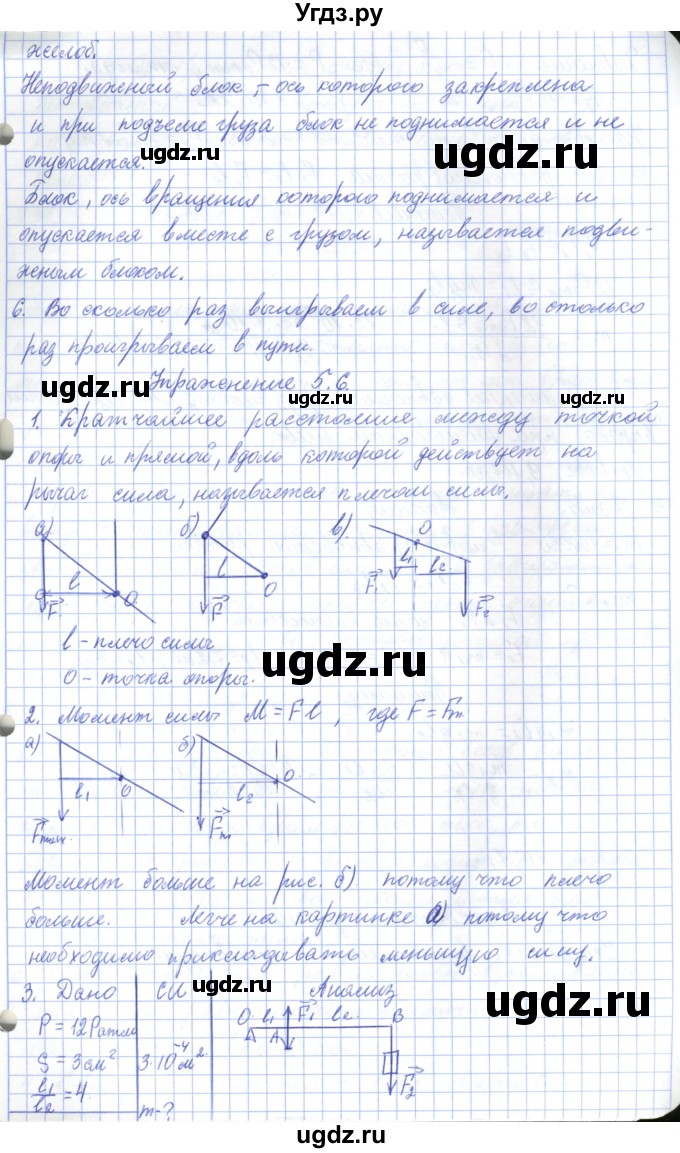 Угдз.ру
желоб.
Неподвижный блок, - ось которого закреплена
и при подъеме груза блок не поднимается и не
опускается.
Блок, ось вращения которого поднимается и
опускается вместе с грузом, называется подви-
жным блоком.
6. Во сколько раз выигрываем в силе, во столько
раз проигрываем в пути.
Упражнение 5.6.
1. Кратчайшее расстояние между точкой
опоры и прямой, вдоль которой действует на
рычаг сила, называется плечом силы.
а) б) в) O
l O F
l O F
l₁ l₂ F₁ F₂
l - плечо силы
O - точка опоры.
2. Момент силы M = Fl, где F = Fт
а) б)
l₁ O l₂ O
Fт
Момент больше на рис. б) потому что плечо
больше. Легче на картинке а) потому что
необходимо прикладывать меньшую силу.
3. Дано СИ Анализ
O l₁ F₁ l₂ B
A
P = 12Ратм
S = 3см² 3·10⁻⁴м²
l₁/l₂ = 4 F₂
m-?
ugdz.ru
ugdz.ru
ugdz.ru
ugdz.ru
ugdz.ru
ugdz.ru
ugdz.ru
ugdz.ru
ugdz.ru
ugdz.ru
ugdz.ru